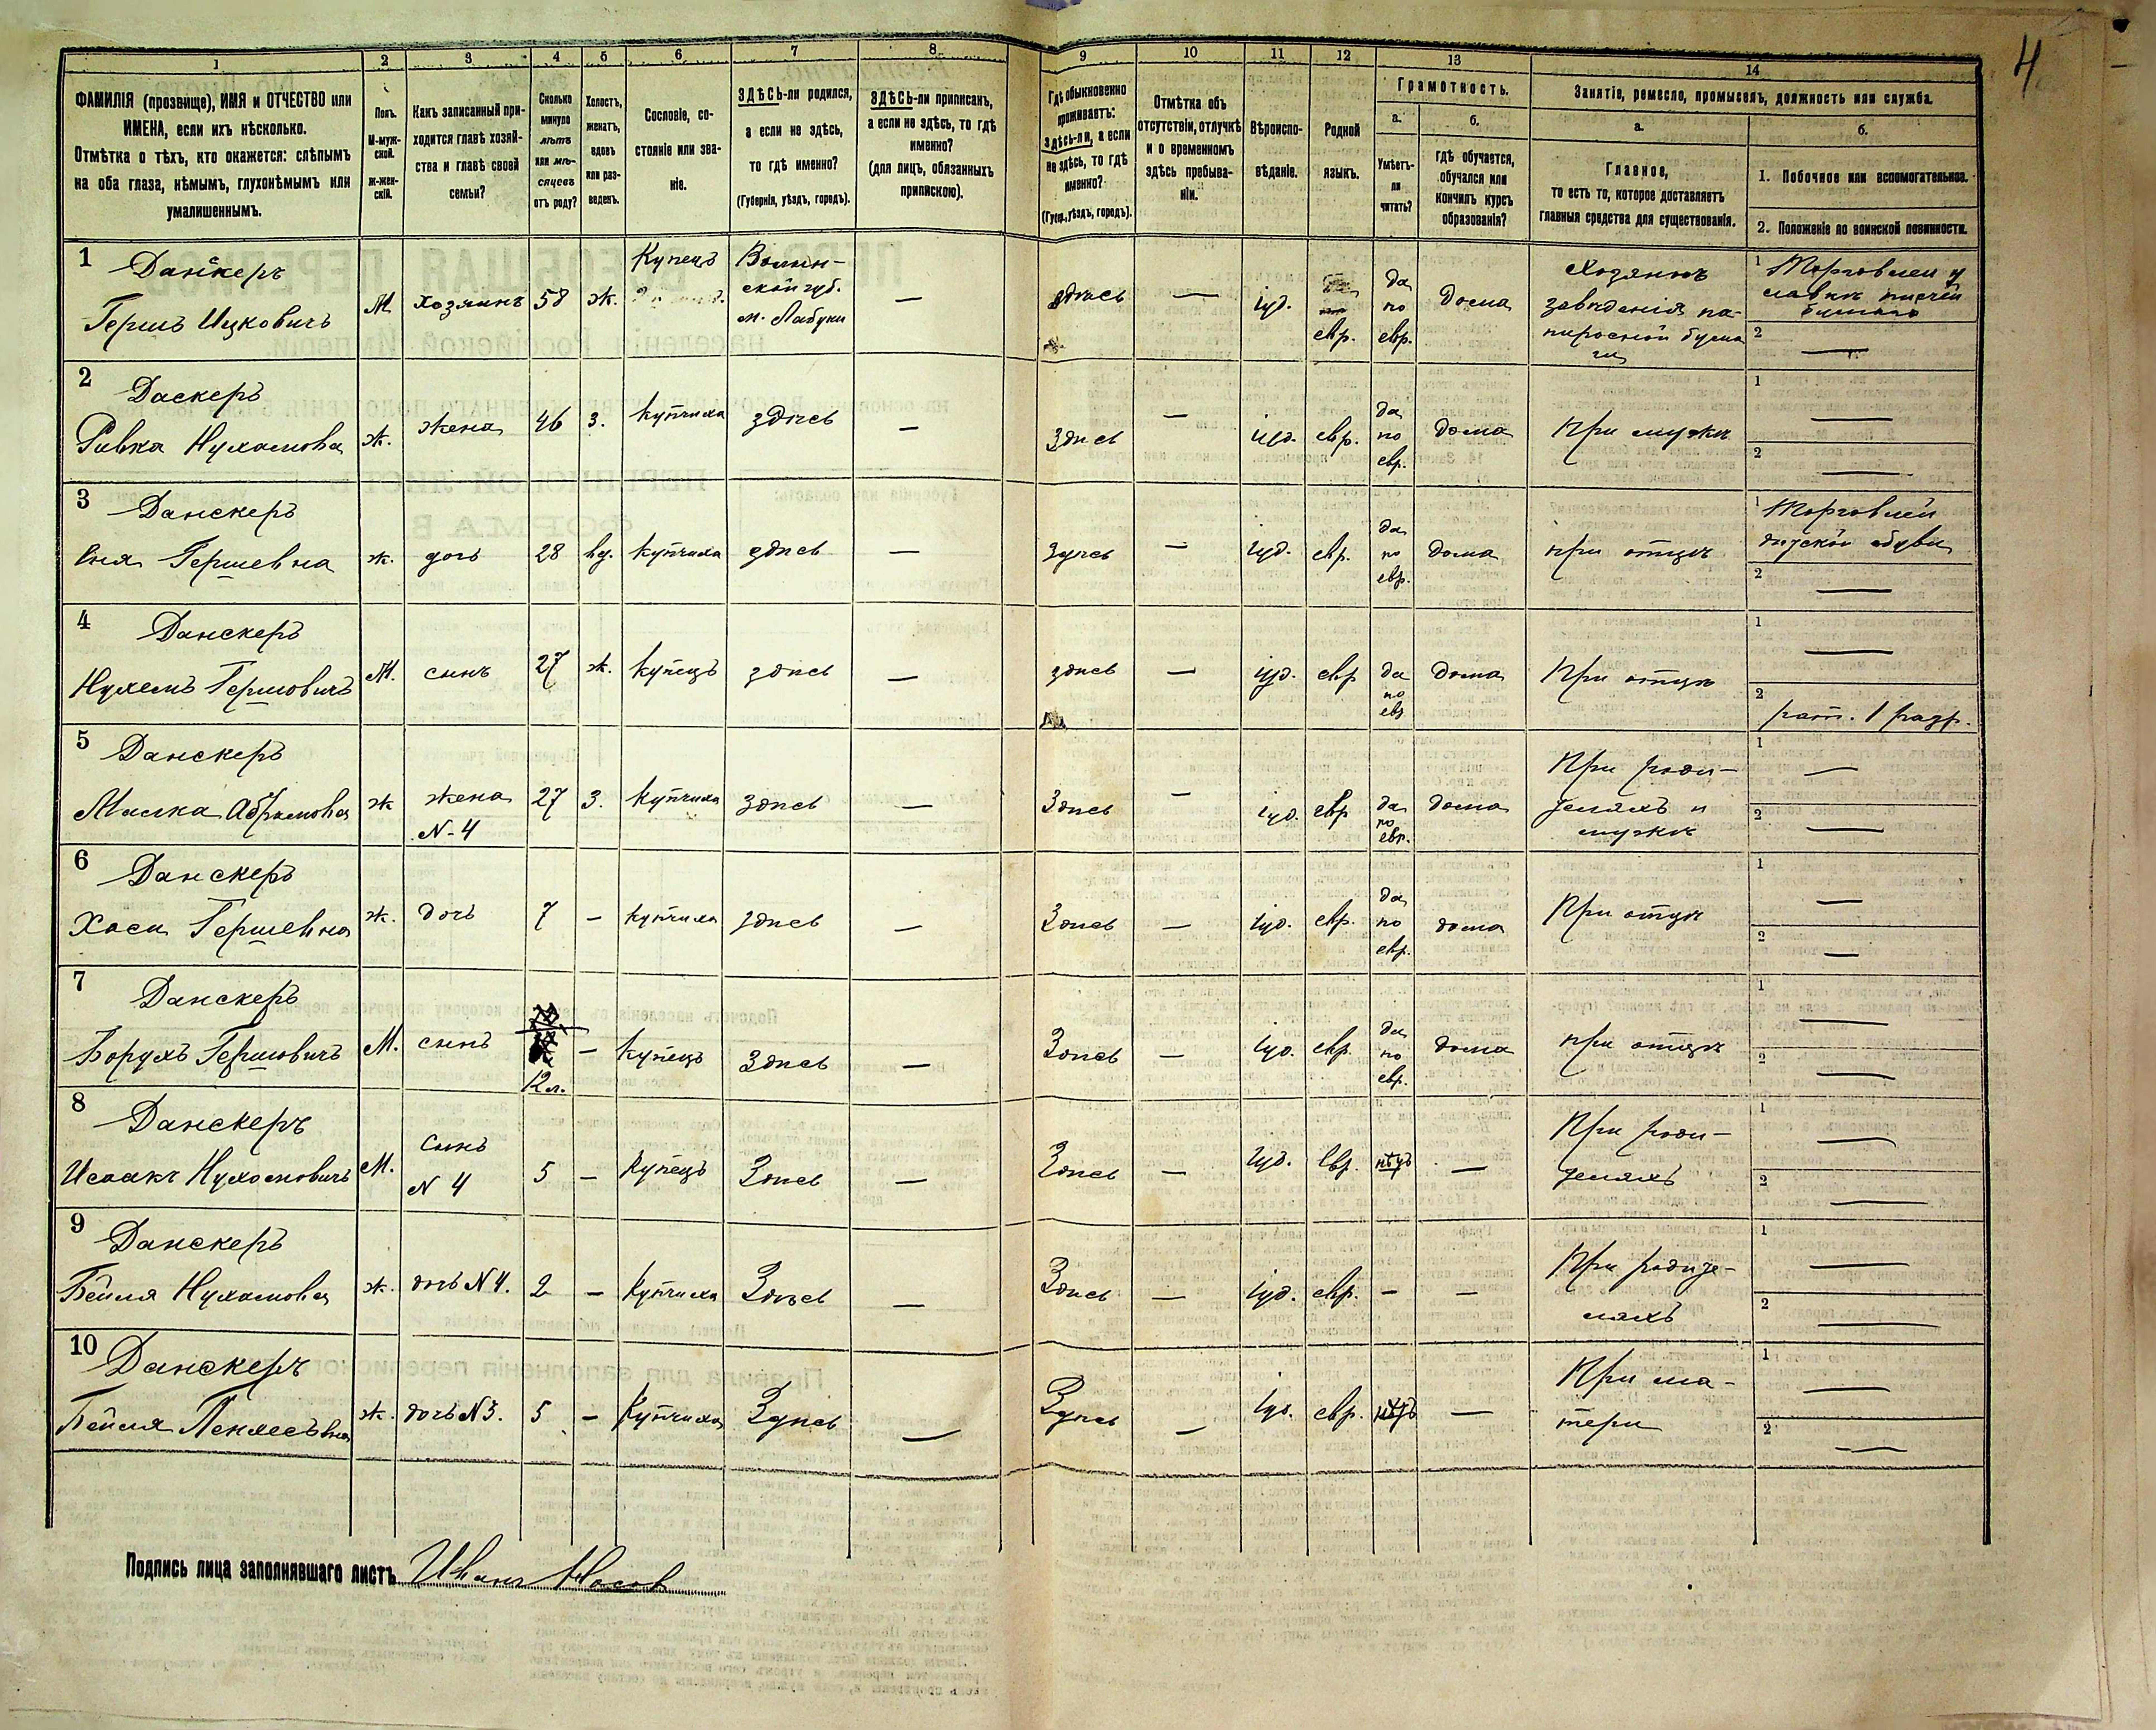 4
1 2 3 4 5 6 7 8 9 10 11 12 13 14
ФАМИЛІЯ (прозвище), ИМЯ и ОТЧЕСТВО или
ИМЕНА, если ихъ нѣсколько.
Отмѣтка о тѣхъ, кто окажется: слѣпымъ
на оба глаза, нѣмымъ, глухонѣмымъ или
умалишеннымъ.
Полъ.
М-муж-
ской.
Ж-жен-
скій.
Какъ записанный при-
ходится главѣ хозяй-
ства и главѣ своей
семьи?
Сколько
минуло
лѣтъ
или мѣ-
сяцевъ
отъ роду?
Холостъ,
женатъ,
вдовъ
или раз-
веденъ.
Сословіе, со-
стояніе или зва-
ніе.
ЗДѢСЬ-ли родился,
а если не здѣсь,
то гдѣ именно?
(Губернія, уѣздъ, городъ).
ЗДѢСЬ-ли приписанъ,
а если не здѣсь, то гдѣ
именно?
(для лицъ, обязанныхъ
припискою).
Гдѣ обыкновенно
проживаетъ:
здѣсь-ли, а если
не здѣсь, то гдѣ
именно?
(Губ., уѣздъ, городъ).
Отмѣтка объ
отсутствіи, отлучкѣ
и о временномъ
здѣсь пребыва-
ніи.
Вѣроиспо-
вѣданіе.
Родной
языкъ.
Грамотность.
а.
Умѣетъ-
ли
читать?
б.
гдѣ обучается,
обучался или
кончилъ курсъ
образованія?
Занятіе, ремесло, промыселъ, должность или служба.
а.
Главное,
то есть то, которое доставляетъ
главныя средства для существованія.
б.
1. Побочное или вспомогательное.
2. Положеніе по воинской повинности.
1 Данскеръ
Гершъ Ицковичъ
М.
хозяинъ
58
ж.
Купецъ
Волын-
ской губ.
м. Лабуки
—
здѣсь
—
іуд.
евр.
да
по
евр.
дома
Хозяинъ
заведенія па-
пиросной бума
ги
1 Торговлей
2 —
2 Даскеръ
Ривка Нухамова
ж.
жена
46
з.
купчиха
здѣсь
—
Здѣсь
—
іуд.
евр.
да
по
евр.
дома
При мужѣ
1 —
2 —
3 Данскеръ
Еня Гершевна
ж.
дочь
28
вд.
купчиха
здѣсь
—
здѣсь
—
іуд.
евр.
да
по
евр.
дома
при отцѣ
1 Торговлей
дѣтской обуви
2 —
4 Данскеръ
Нухемъ Гершовичъ
М.
сынъ
27
ж.
купецъ
здѣсь
—
здѣсь
—
іуд.
евр
да
по
евр
дома
При отцѣ
1 —
2 рат. 1 разр.
5 Данскеръ
Малка Абрамова
ж
жена
N-4
27
з.
купчиха
здѣсь
—
Здѣсь
—
іуд.
евр
да
по
евр.
дома
При роди-
теляхъ и
мужѣ
1 —
2 —
6 Данскеръ
Хася Гершевна
ж.
дочь
7
—
купчиха
здѣсь
—
Здѣсь
—
іуд.
евр.
да
по
евр.
дома
При отцѣ
1 —
2 —
7 Данскеръ
Борухъ Гершовичъ
М.
сынъ
12 л.
—
купецъ
Здѣсь
—
Здѣсь
—
іуд.
евр.
да
по
евр.
дома
при отцѣ
1 —
2 —
8 Данскеръ
Исаакъ Нухомовичъ
М.
Сынъ
N 4
5
—
Купецъ
Здѣсь
—
Здѣсь
—
іуд.
Евр.
нѣтъ
—
При роди-
теляхъ
1 —
2 —
9 Данскеръ
Бейля Нухамовна
ж.
дочь N 4.
2
—
Купчиха
Здѣсь
—
Здѣсь
—
іуд.
евр.
—
—
При родите-
ляхъ
1 —
2 —
10 Данскеръ
Бейля Пенхесъвна
ж.
дочь N 3.
5
—
Купчиха
Здѣсь
—
Здѣсь
—
іуд.
евр.
нѣтъ
—
При ма-
тери
1 —
2 —
Подпись лица заполнявшаго листъ Иванъ Носов